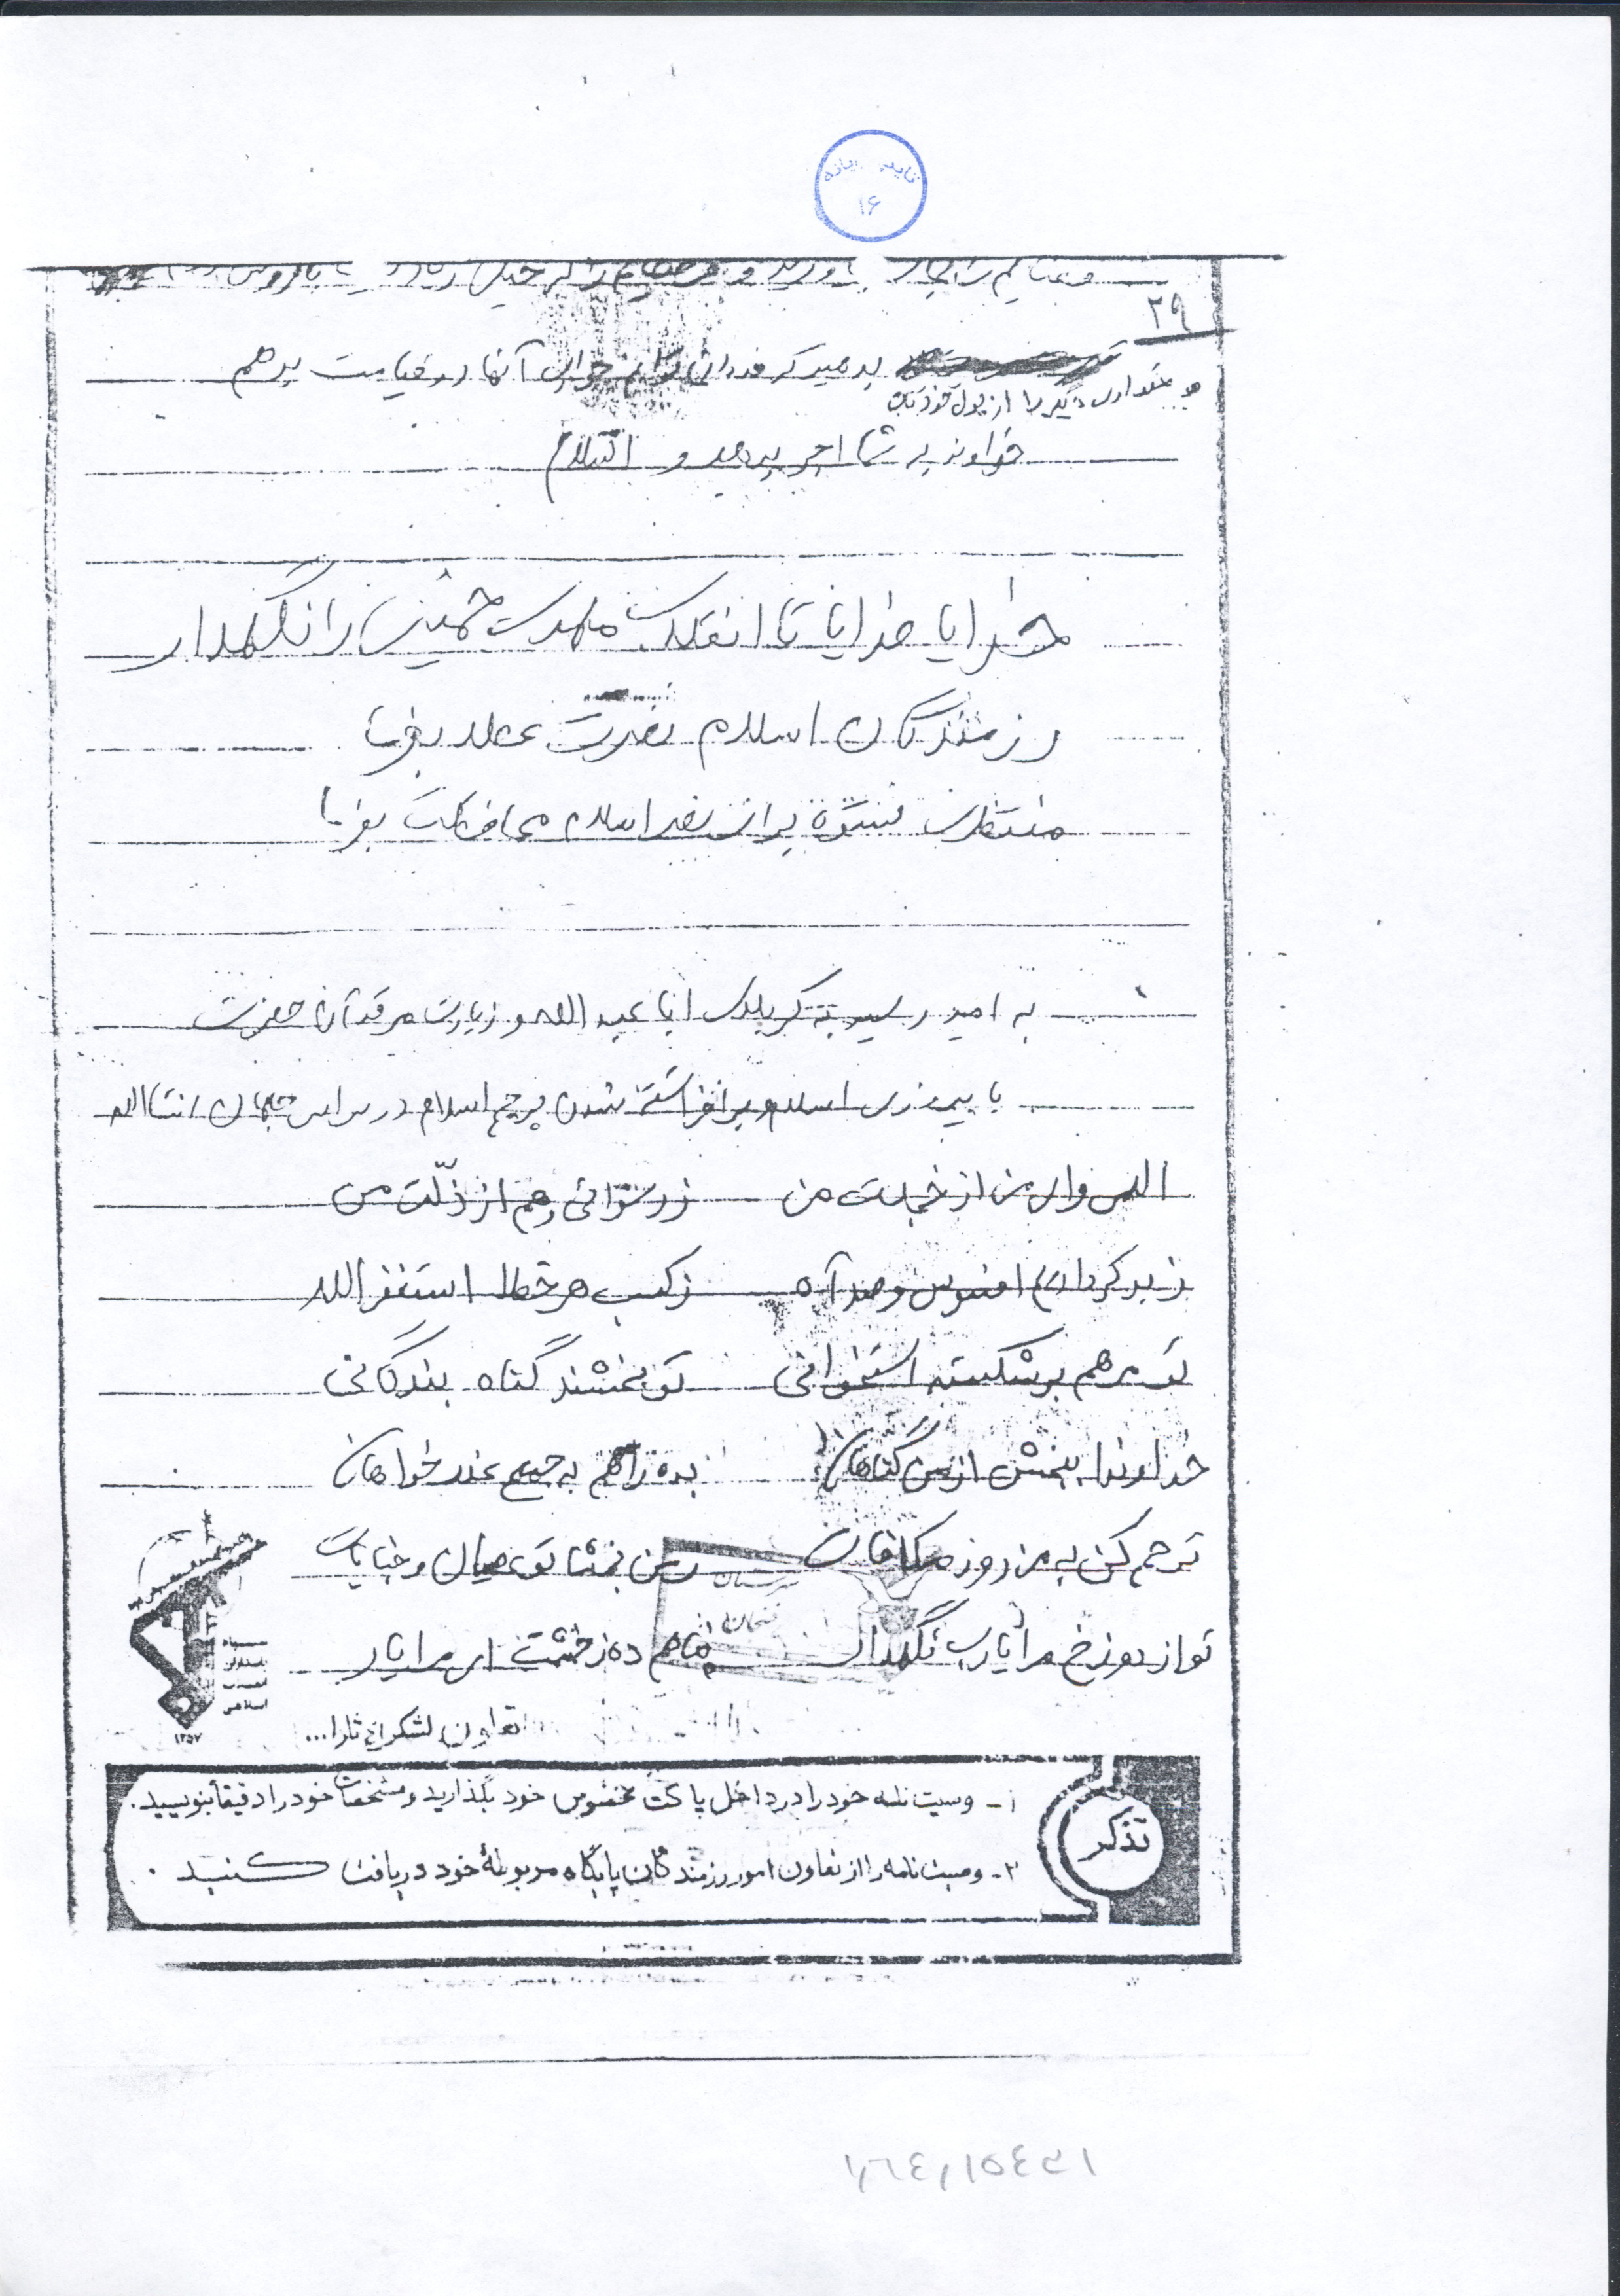 ۱۶
۲۹
بدهید که فردا نتوانم جواب آنها در قیامت بدهم
و مقداری دیگر را از پول خودتان
خداوند به شما اجر بدهد و السلام
خدایا خدایا تا انقلاب مهدی خمینی را نگهدار
رزمندگان اسلام نصرت عطا بفرما
منتظری نستوه برای نصر اسلام محافظت بفرما
به امید رسیدن به کربلای ابا عبدالله و زیارت مرقد آن حضرت
با پیروزی اسلام و برافراشته شدن پرچم اسلام در سراسر جهان انشاالله
الهی وای من از خجلت من ز رسوائی و هم از ذلّت من
ز بد کرداریم افسوس و صد آه ز کسب هر خطا استغفرالله
تو مرهم بر شکسته استخوانی تو بخشند گناه بندگانی
خداوندا ببخش از من گناهان بده راهم به جمع عذر خواهان
ترحم کن به من روز مکافات ز من بخشا تو عصیان و جنایات
تو از دوزخ مرا یارب نگهدار پناهم ده ز خشمت ای مرا یار
سپاه
پاسداران
انقلاب
اسلامی
۱۳۵۷
تعاون لشکر ثارا...
تذکر
۱- وصیت نامه خود را در داخل پاکت مخصوص خود بگذارید و مشخصات خود را دقیقاً بنویسید.
۲- وصیت نامه را از تعاون امور رزمندگان پایگاه مربوطهٔ خود دریافت کنید.